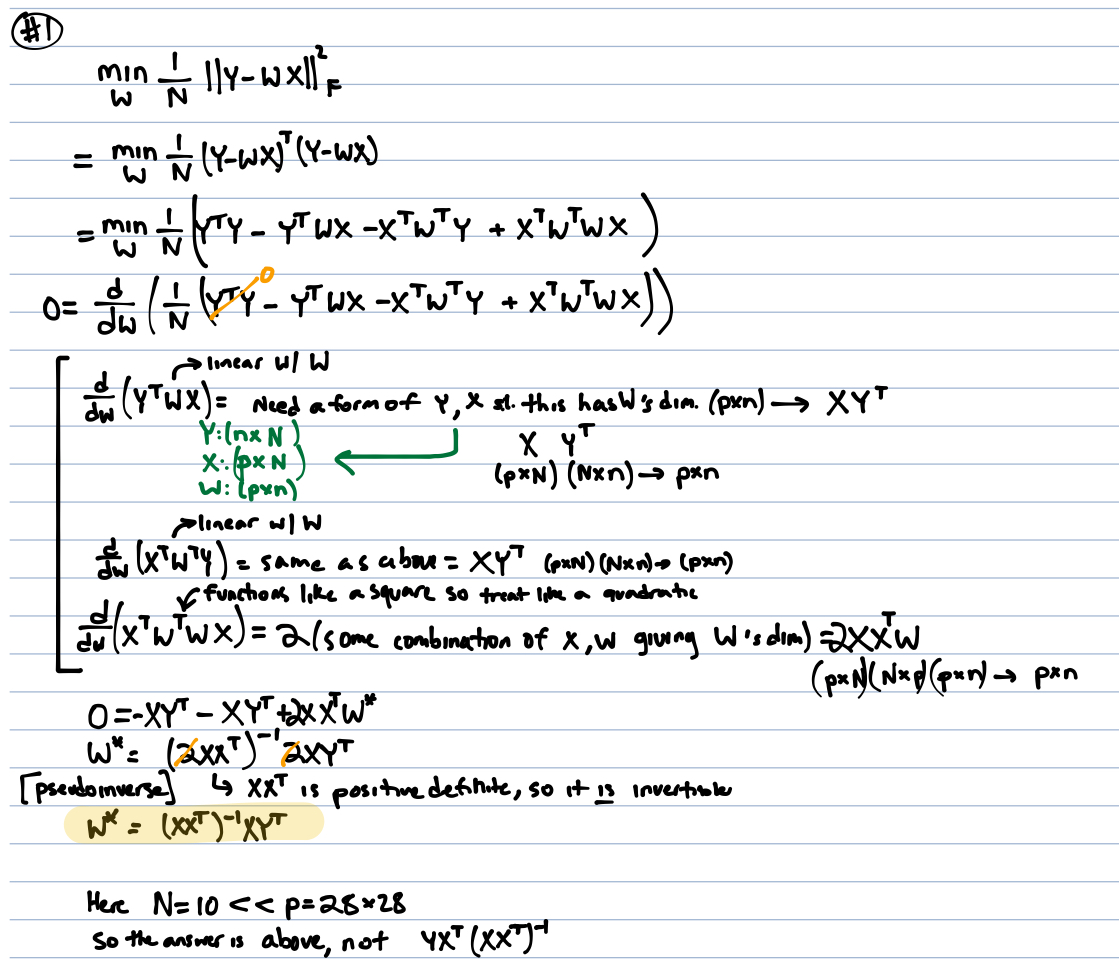 #1
min_W 1/N ||Y-WX||²_F
= min_W 1/N (Y-WX)ᵀ(Y-WX)
= min_W 1/N (YᵀY - YᵀWX - XᵀWᵀY + XᵀWᵀWX)
0 = d/dW (1/N (YᵀY - YᵀWX - XᵀWᵀY + XᵀWᵀWX))
0
→ linear w/ W
d/dW (YᵀWX) = Need a form of Y, X st. this has W's dim. (p×n) → XYᵀ
Y: (n×N)
X: (p×N)
W: (p×n)
X Yᵀ
(p×N) (N×n) → p×n
→ linear w/ W
d/dW (XᵀWᵀY) = same as above = XYᵀ (p×N)(N×n) → (p×n)
functions like a square so treat like a quadratic
d/dW (XᵀWᵀWX) = 2(some combination of X, W giving W's dim) = 2XXᵀW
(p×N)(N×p)(p×n) → p×n
0 = -XYᵀ - XYᵀ + 2XXᵀW*
W* = (2XXᵀ)⁻¹ 2XYᵀ
[pseudoinverse] ↳ XXᵀ is positive definite, so it is invertible
W* = (XXᵀ)⁻¹XYᵀ
Here N=10 << p=28×28
So the answer is above, not YXᵀ(XXᵀ)⁻¹